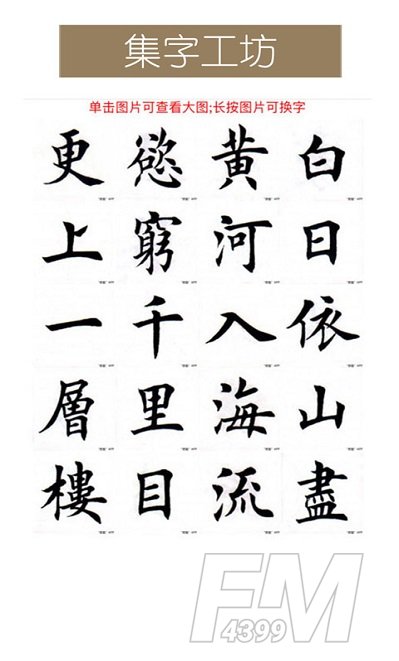 集字工坊
单击图片可查看大图;长按图片可换字
白日依山盡
黄河入海流
慾窮千里目
更上一層樓
FM
4399